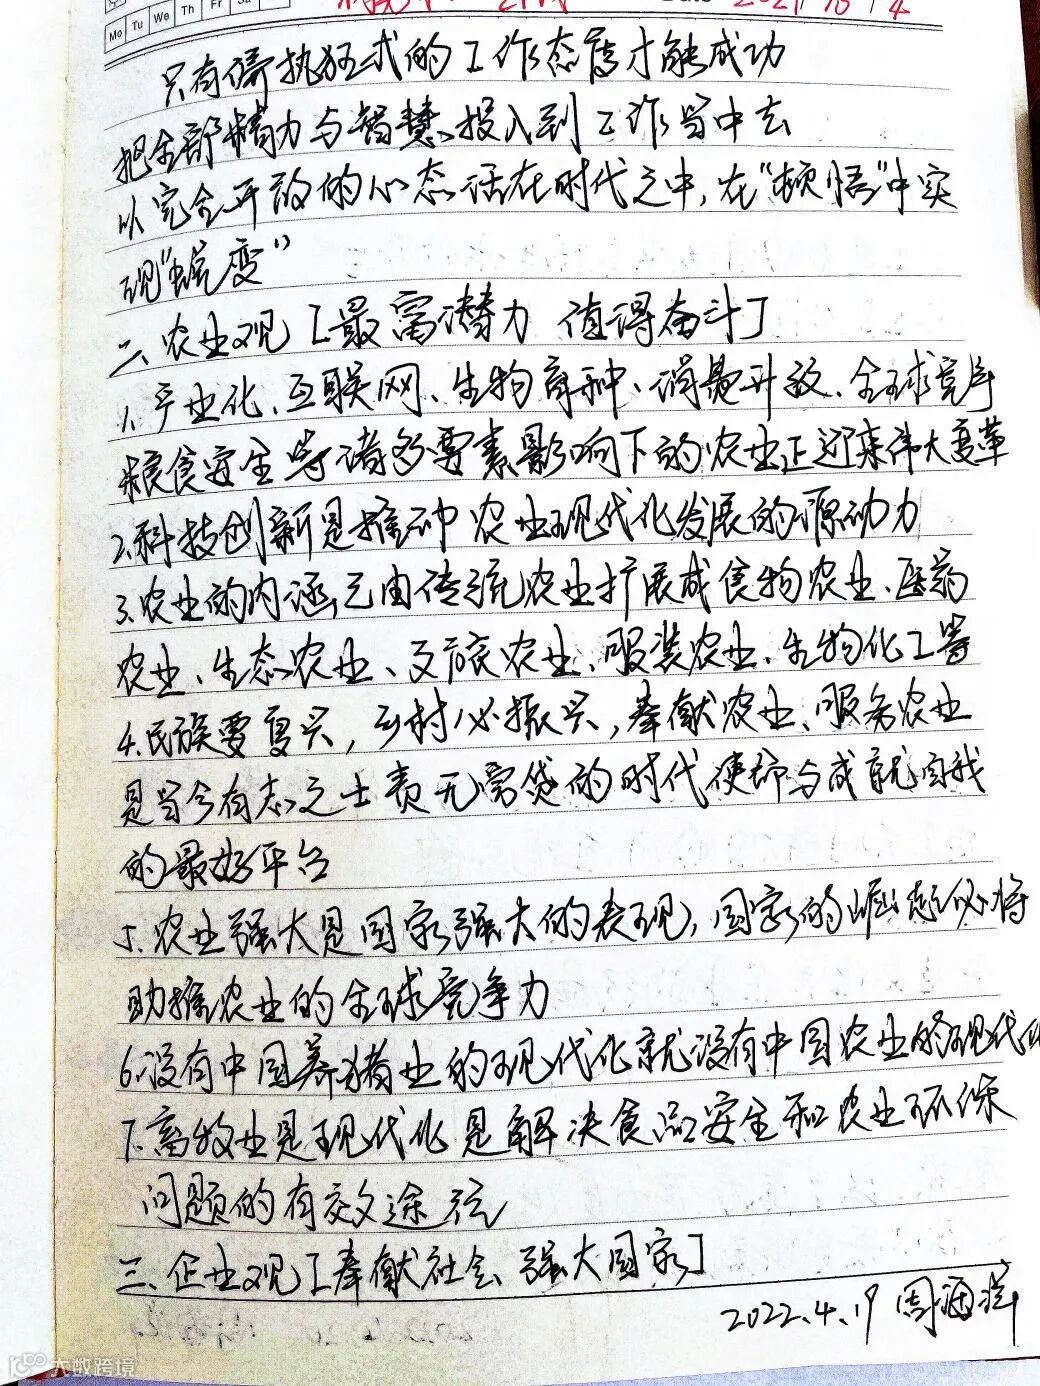 Mo Tu We Th Fr Sa Date 2021/10/4
只有偏执狂式的工作态度才能成功
把全部精力与智慧、投入到工作当中去
以完全开放的心态活在时代之中,在“顿悟”中实
现“蜕变”
二、农业观[最富潜力 值得奋斗]
1.产业化、互联网、生物育种、消费升级、全球竞争
粮食安全等诸多要素影响下的农业正迎来伟大变革
2.科技创新是推动农业现代化发展的源动力
3.农业的内涵已由传统农业扩展成食物农业、医药
农业、生态农业、文旅农业、服装农业、生物化工等
4.民族要复兴,乡村必振兴,奉献农业、服务农业
是当今有志之士责无旁贷的时代使命与成就自我
的最好平台
5.农业强大是国家强大的表现,国家的崛起必将
助推农业的全球竞争力
6.没有中国养猪业的现代化就没有中国农业的现代化
7.畜牧业是现代化是解决食品安全和农业环保
问题的有效途径
三、企业观[奉献社会 强大国家]
2022.4.19 周
大数跨境